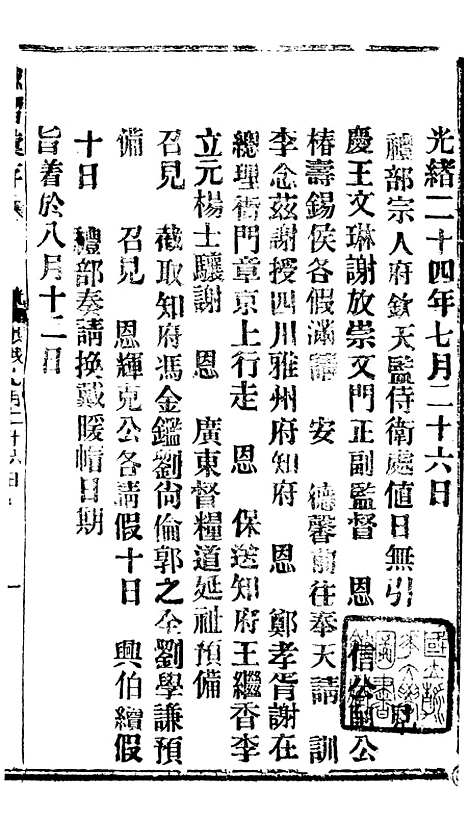 光緒二十四年七月二十六日
禮部宗人府欽天監侍衛處值日無引
慶王文琳謝放崇文門正副監督　恩　信公
椿壽錫侯各假滿請　安　德馨前往奉天請　訓
李念茲謝授四川雅州府知府　恩　鄭孝胥謝在
總理衙門章京上行走　恩　保送知府王繼香李
立元楊士驤謝　恩　廣東督糧道延祉預備
召見　截取知府馮金鑑劉尚倫郭之全劉學謙預
備　召見　恩輝克公各請假十日　興伯續假
十日　禮部奏請換戴暖帽日期
旨着於八月十二日